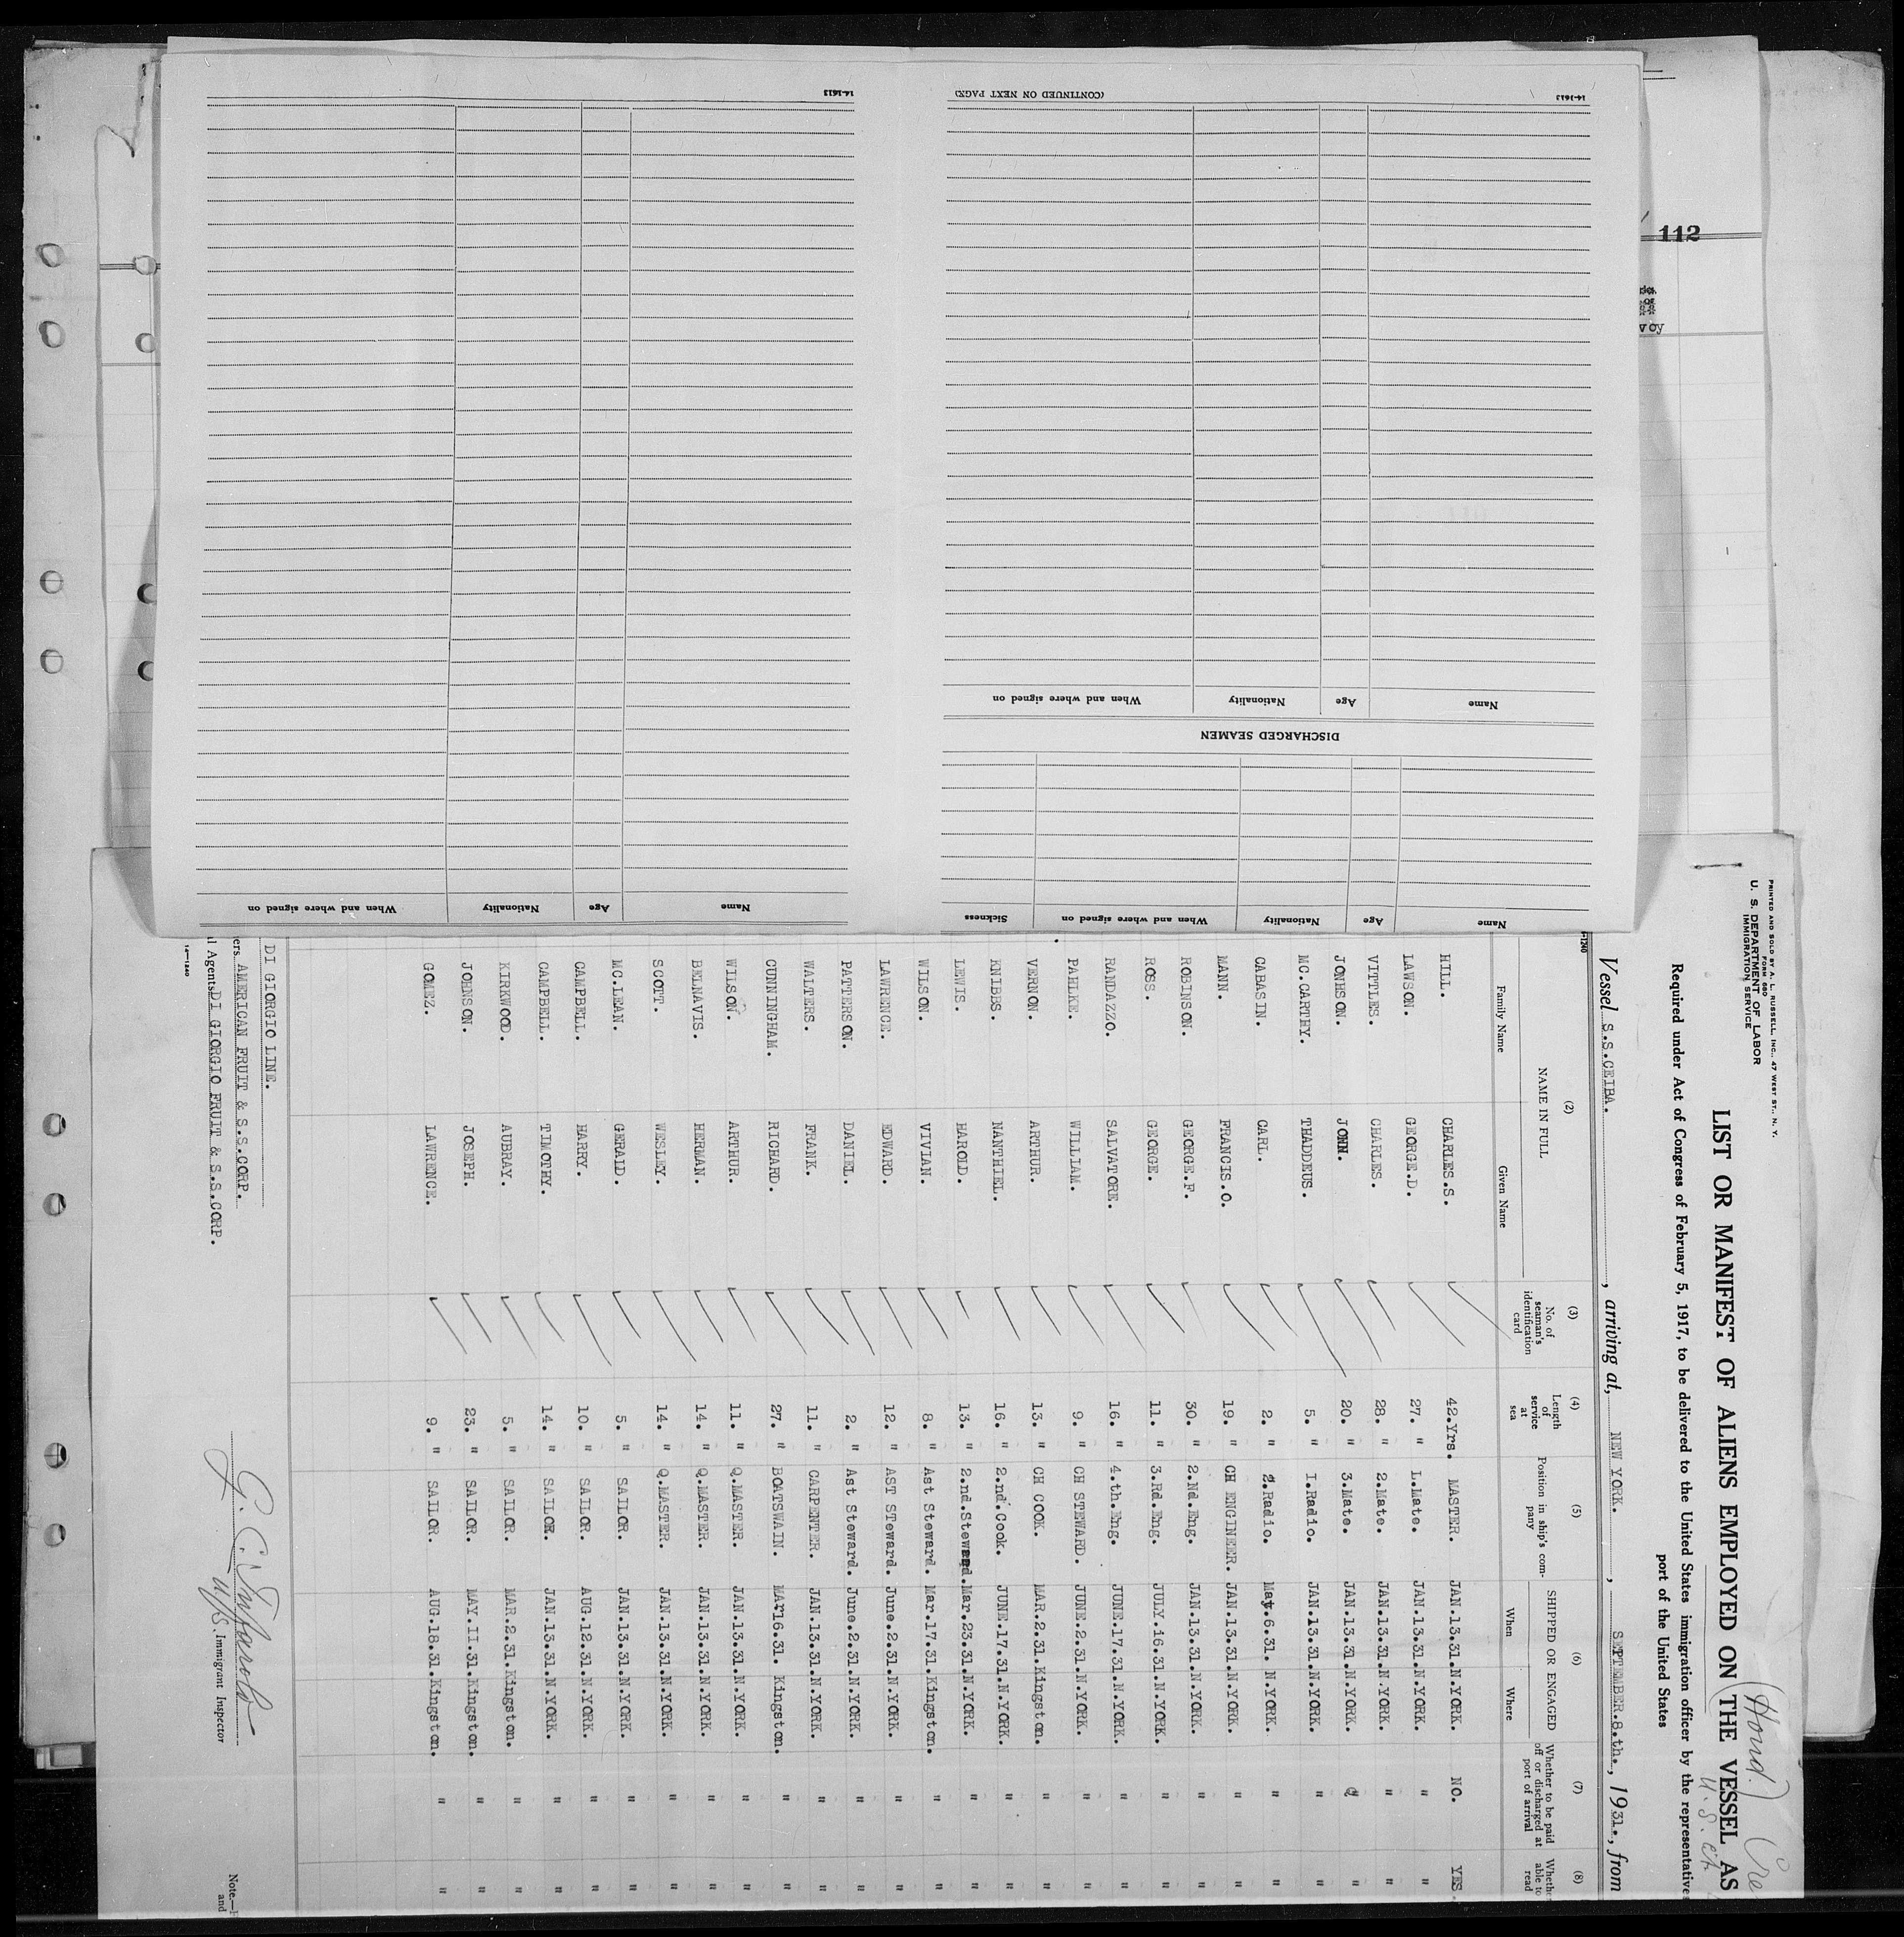 112
14-1613
(CONTINUED ON NEXT PAGE)
14-1613
When and where signed on
Nationality
Age
Name
DISCHARGED SEAMEN
Name
Age
Nationality
When and where signed on
Sickness
Name
Age
Nationality
When and where signed on
PRINTED AND SOLD BY A. L. RUSSELL, INC., 47 WEST ST., N. Y.
FORM 680
U. S. DEPARTMENT OF LABOR
IMMIGRATION SERVICE
(Hond.)
U. S. cit
LIST OR MANIFEST OF ALIENS EMPLOYED ON THE VESSEL AS
Required under Act of Congress of February 5, 1917, to be delivered to the United States immigration officer by the representatives
port of the United States
Vessel S.S.CEIBA. , arriving at, NEW YORK. , SEPTEMBER.8.th., 1931., from
(2) (3) (4) (5) (6) (7) (8)
NAME IN FULL No. of seaman's identification card Length of service at sea Position in ship's company SHIPPED OR ENGAGED Whether to be paid off or discharged at port of arrival Whether able to read
Family Name Given Name When Where
HILL. CHARLES.S. 42.Yrs. MASTER. JAN.13.31.N.YORK. NO. YES.
LAWSON. GEORGE.D. 27. " L.Mate. JAN.13.31.N.YORK. " "
VITTLES. CHARLES. 28. " 2.Mate. JAN.13.31.N.YORK. " "
JONHSON. JOHN. 20. " 3.Mate. JAN.13.31.N.YORK. " "
MC.CARTHY. THADDEUS. 5. " I.Radio. JAN.13.31.N.YORK. " "
CABASIN. CARL. 2. " 2.Radio. May.6.31. N.YORK. " "
MANN. FRANCIS.O. 19. " CH ENGINEER. JAN.13.31.N.YORK. " "
ROBINSON. GEORGE.F. 30. " 2.Nd.Eng. JAN.13.31.N.YORK. " "
ROSS. GEORGE. 11. " 3.Rd.Eng. JULY.16.31.N.YORK. " "
RANDAZZO. SALVATORE. 16. " 4.th.Eng. JUNE.17.31.N.YORK. " "
PAHLKE. WILLIAM. 9. " CH STEWARD. JUNE.2.31.N.YORK. " "
VERNON. ARTHUR. 13. " CH COOK. MAR.2.31.Kingston. " "
KNIBBS. NANTHIEL. 16. " 2.nd.Cook. JUNE.17.31.N.YORK. " "
LEWIS. HAROLD. 13. " 2.nd.Steward.Mar.23.31.N.YORK. " "
WILSON. VIVIAN. 8. " Ast Steward. Mar.17.31.Kingston. " "
LAWRENCE. EDWARD. 12. " AST STeward. June.2.31.N.YORK. " "
PATTERSON. DANIEL. 2. " Ast Steward. June.2.31.N.YORK. " "
WALTERS. FRANK. 11. " CARPENTER. JAN.13.31.N.YORK. " "
CUNNINGHAM. RICHARD. 27. " BOATSWAIN. MAr16.31. Kingston. " "
WILSON. ARTHUR. 11. " Q.MASTER. JAN.13.31.N.YORK. " "
BELNAVIS. HERMAN. 14. " Q.MASTER. JAN.13.31.N.YORK. " "
SCOTT. WESLEY. 14. " Q.MASTER. JAN.13.31.N.YORK. " "
MC.LEAN. GERALD. 5. " SAILOR. JAN.13.31.N.YORK. " "
CAMPBELL. HARRY. 10. " SAILOR. AUG.12.31.N.YORK. " "
CAMPBELL. TIMOTHY. 14. " SAILOR. JAN.13.31.N.YORK. " "
KIRKWOOD. AUBRAY. 5. " SAILOR. MAR.2.31.Kingston. " "
JOHNSON. JOSEPH. 23. " SAILOR. MAY.II.31.Kingston. " "
GOMEZ. LAWRENCE. 9. " SAILOR. AUG.18.31.Kingston. " "
DI GIORGIO LINE.
ers AMERICAN FRUIT & S.S.CORP.
l Agents DI GIORGIO FRUIT & S.S.CORP.
14-1240
Immigrant Inspector
Note.—
and